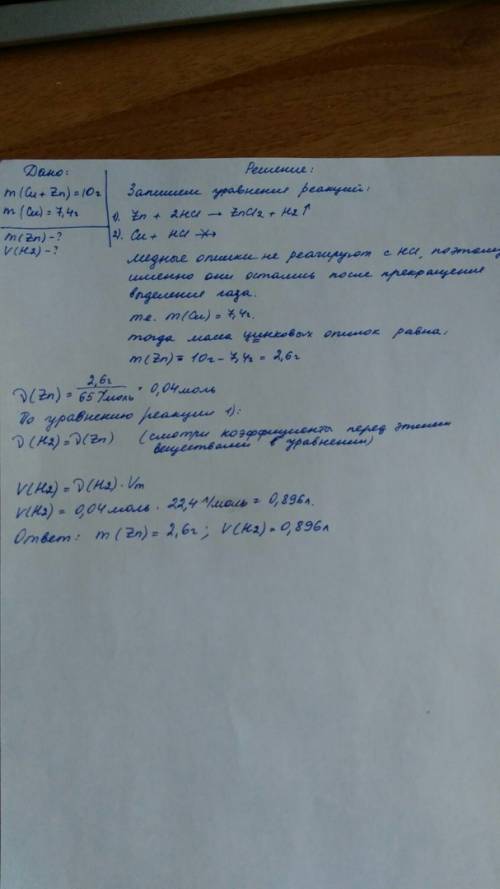 Дано:
m(Cu+Zn)=10г
m(Cu)=7,4г
m(Zn)-?
V(H2)-?
Решение:
Запишем уравнение реакций:
1). Zn + 2HCl → ZnCl2 + H2↑
2). Cu + HCl ↛
медные опилки не реагируют с HCl, поэтому
именно они остались после прекращения
выделения газа.
т.е. m(Cu)=7,4г.
тогда масса цинковых опилок равна:
m(Zn)= 10г-7,4г = 2,6г
ν(Zn)= 2,6г/65г/моль = 0,04моль
По уравнению реакции 1):
ν(H2)=ν(Zn) (смотри коэффициенты перед этими
веществами в уравнении)
V(H2)=ν(H2)·Vm
V(H2)=0,04моль · 22,4л/моль = 0,896л.
Ответ: m(Zn)=2,6г; V(H2)=0,896л